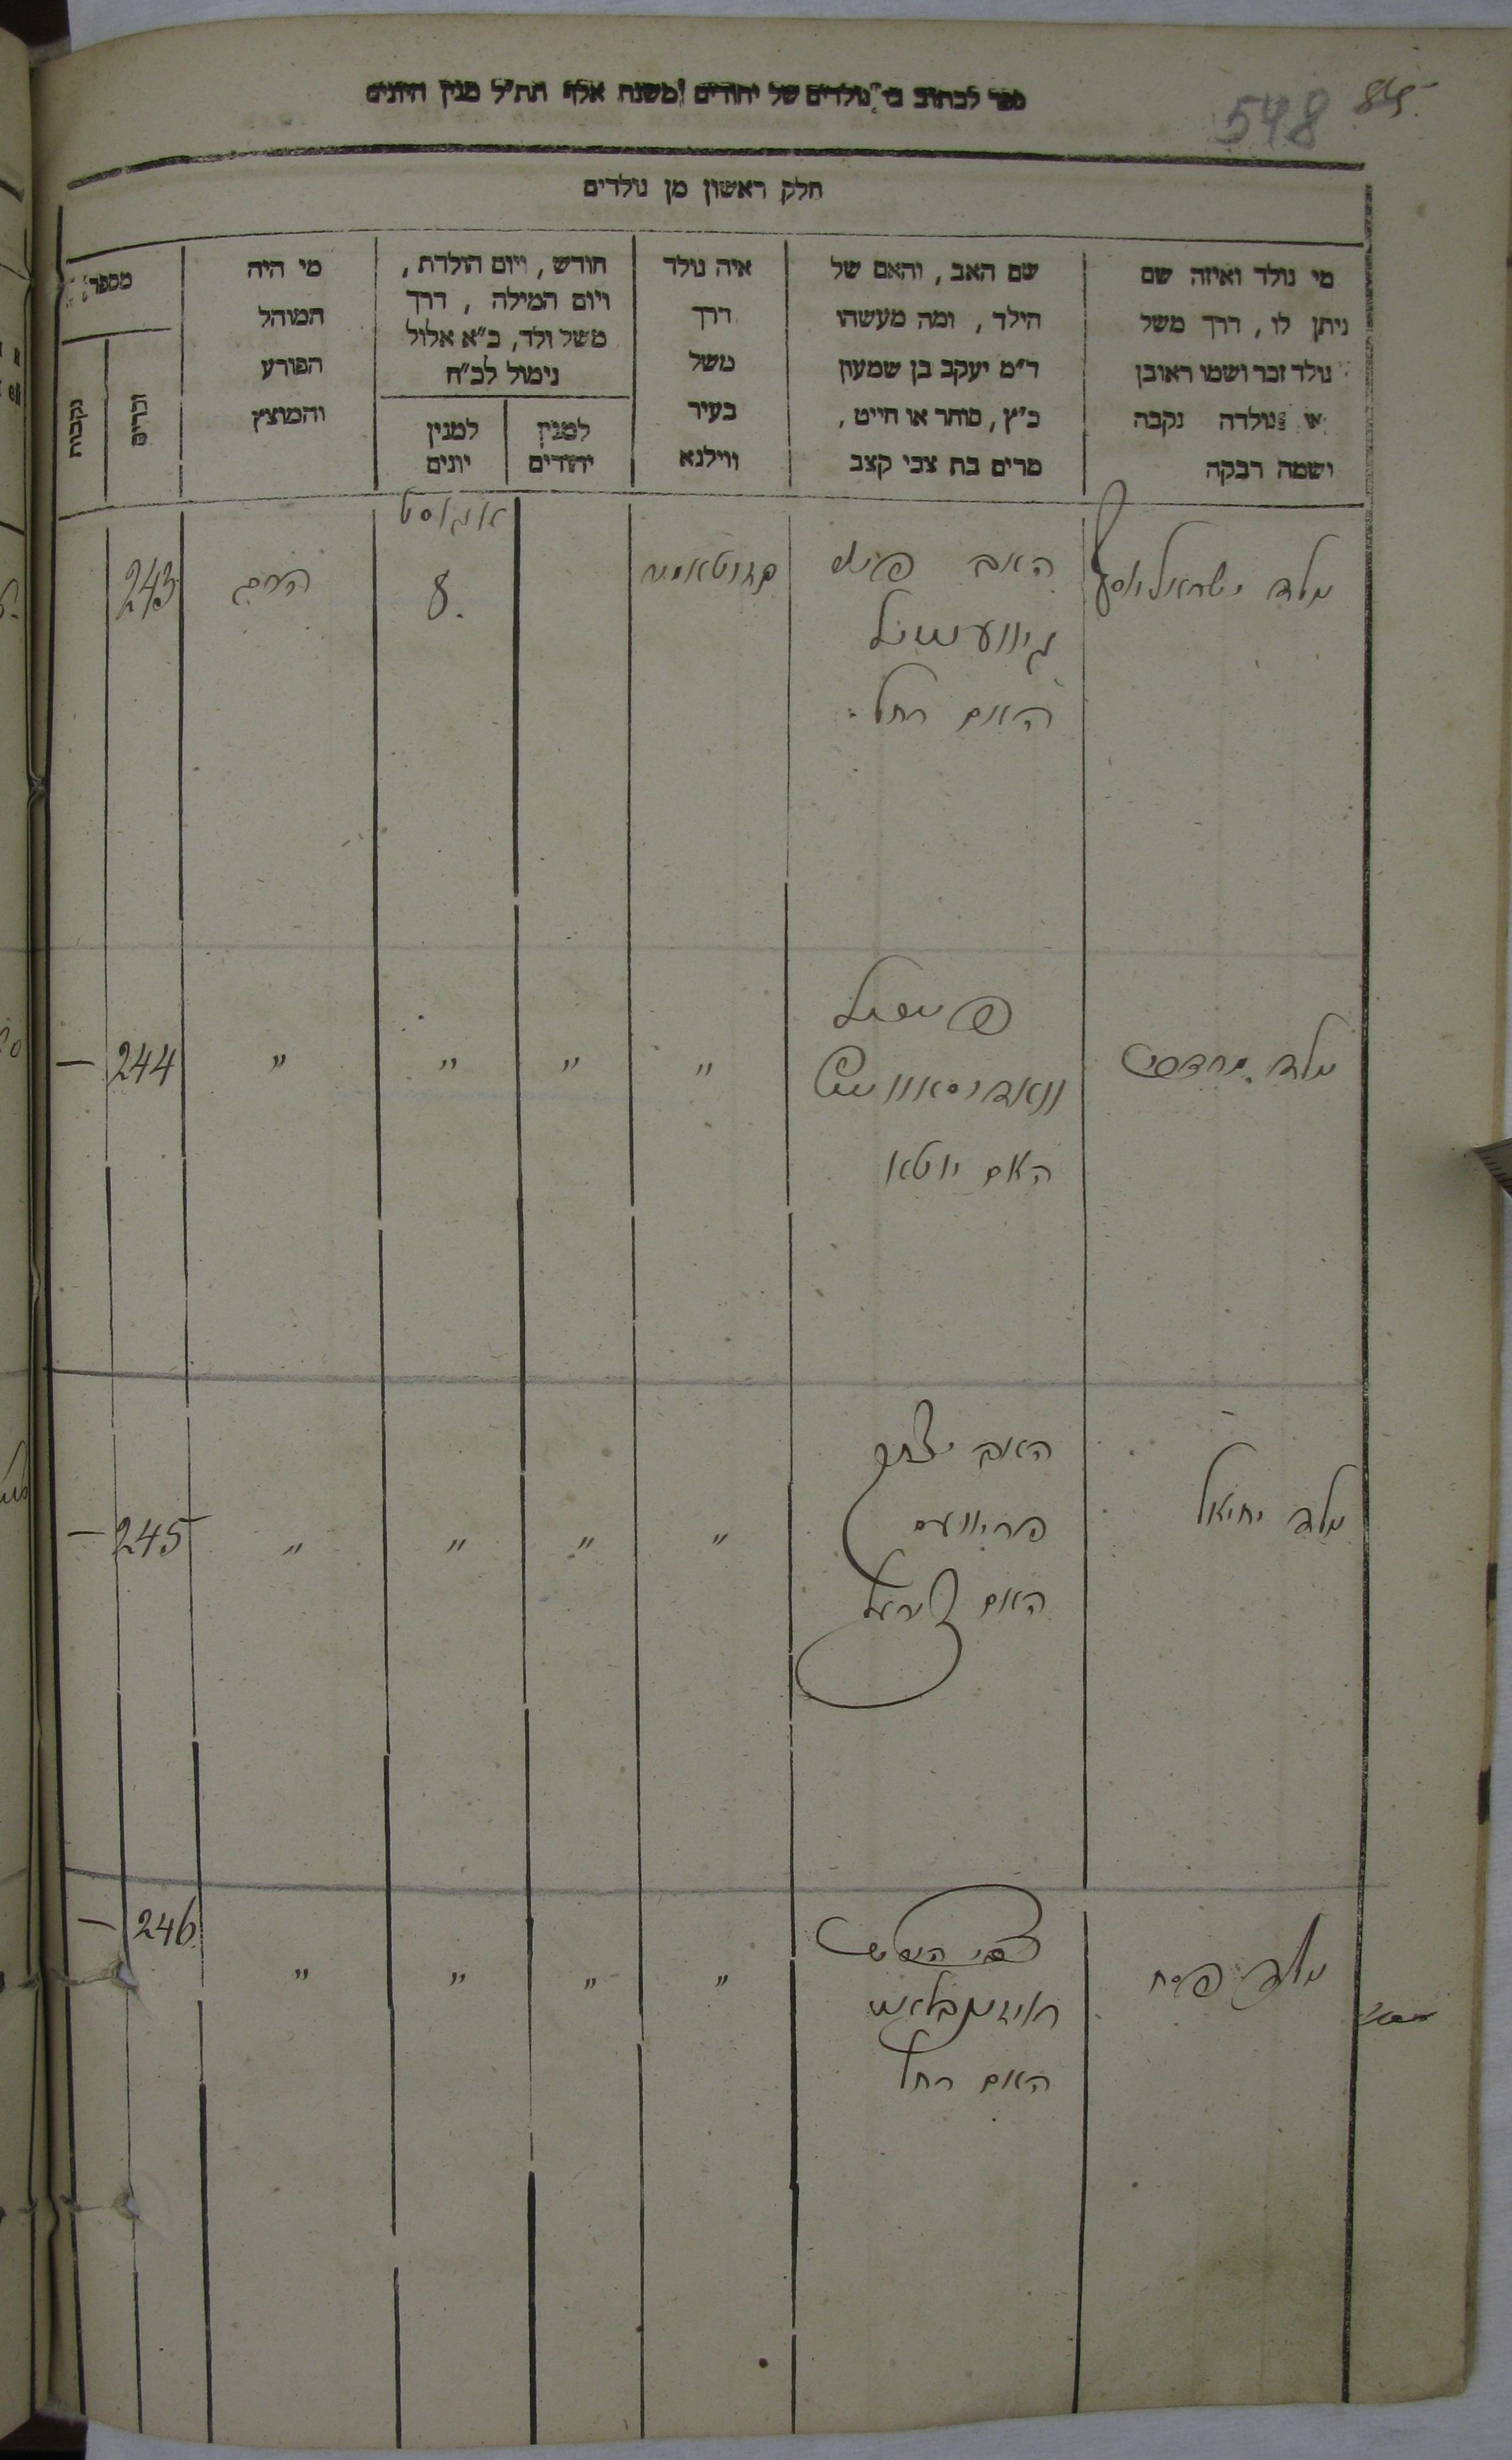 ספר לכתוב בו נולדים של יהודים משנת אלף תת״ל מנין היונים
548 845.
חלק ראשון מן נולדים
מי נולד ואיזה שם
ניתן לו, דרך משל
נולד זכר ושמו ראובן
או נולדה נקבה
ושמה רבקה
שם האב, והאם של
הילד, ומה מעשהו
ד״מ יעקב בן שמעון
כ״ץ, סוחר או חייט,
מרים בת צבי קצב
איה נולד
דרך
משל
בעיר
ווילנא
חודש, ויום הולדת,
ויום המילה, דרך
משל ולד, כ״א אלול
נימול לכ״ח
למנין
יהודים
למנין
יונים
מי היה
המוהל
הפורע
והמוצץ
מספר
זכרים
נקבות
נולד ישראל יוסף
האב
האם רחל
אוגוסט
8.
243
נולד מרדכי
האם יוטא
"
"
"
"
244 —
נולד יחיאל
האב יצחק
האם
"
"
"
"
245 —
נולד פסח
צבי הירש
ראזינבלאט
האם רחל
"
"
"
"
246 —